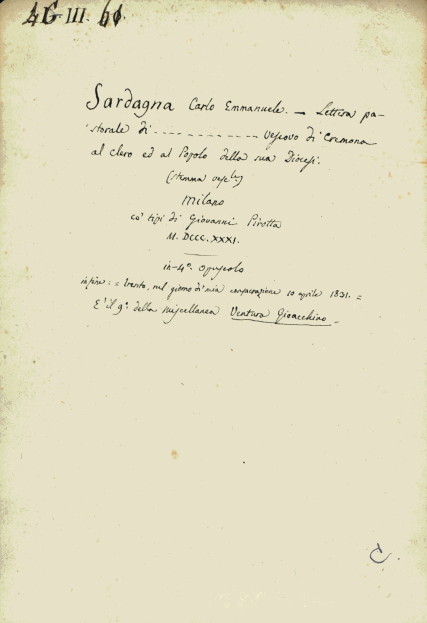 4G-III. 61.
Sardagna Carlo Emmanuele. — Lettera pa-
storale di - - - - - - - - - - - - Vescovo di Cremona
al clero ed al Popolo della sua Diocesi.
(stemma vesc.le)
Milano
co' tipi di Giovanni Pirotta
M. DCCC. XXXI.
in-4º. opuscolo
in fine: = Trento, nel giorno di mia consacrazione 10 aprile 1831. =
E' il 9º. della miscellanea Ventura Gioacchino.
C.